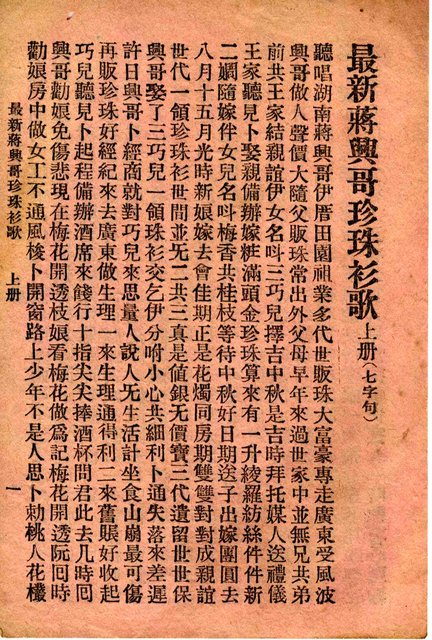 最新蔣興哥珍珠衫歌 上册(七字句)
聽唱湖南蔣興哥伊厝田園祖業多代世販珠大富豪專走廣東受風波
興哥做人聲價大隨父販珠常出外父母早年來過世家中並無兄共弟
前共王家結親誼伊女名叫三巧兒擇吉中秋是吉時拜托媒人送禮儀
王家聽見卜娶親備辦嫁粧滿頭金珍珠算來有一升綾羅紡絲件件新
二嫺隨嫁伴女兒名叫梅香共桂枝等待中秋好日期送子出嫁團圓去
八月十五月光時新娘嫁去會佳期正是花燭同房期雙雙對對成親誼
世代一領珍珠衫世間並旡二共三真是値銀旡價寶三代遺留世世保
興哥娶了三巧兒一領珠衫交乞伊分咐小心共細利卜通失落來差遲
許日興哥卜經商就對巧兒來思量人說人旡生活計坐食山崩最可傷
再販珍珠好經紀來去廣東做生理一來生理通得利二來舊賬好收起
巧兒聽見卜起程備辦酒席來餞行十指尖尖捧酒杯問君此去几時囘
興哥勸娘免傷悲現在梅花開透枝娘看梅花做爲記梅花開透阮囘時
勸娘房中做女工不通風梭卜開窗路上少年不是人思卜勅桃人花欉
最新蔣興哥珍珠衫歌 上册 一